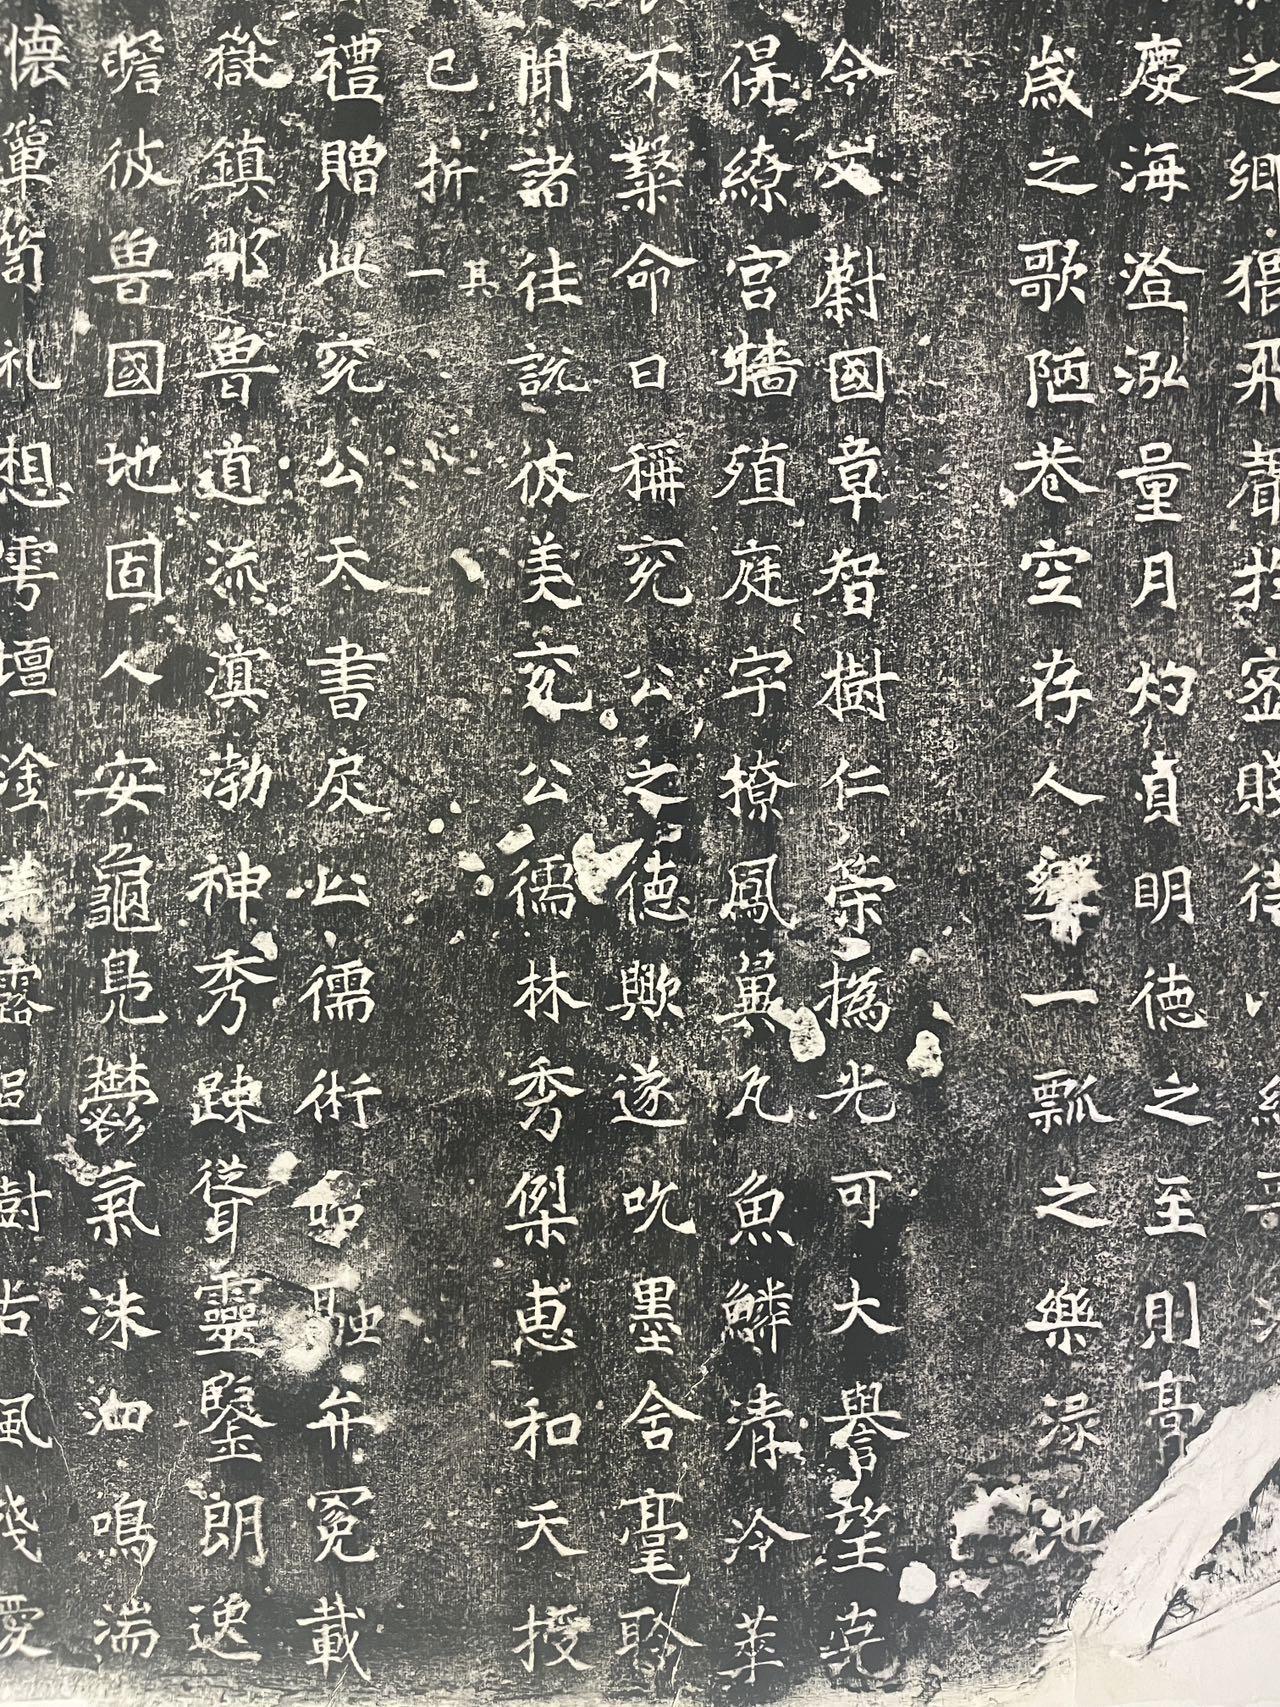 之鄉猥飛聲投
慶海澄泓量月灼貞明德之至則亭
歲之歌陋巷空存人樂一瓢之樂淥池
今文蔚國章智樹仁崇撝光可大譽望
保繚宮牆殖庭宇撩鳳翼瓦魚鱗清泠華
不槩命曰稱兖公之德歟遂吮墨含毫聆
聞諸往說彼美兖公儒林秀傑惠和天授
已折其一
禮贈此兖公天書戾止儒術 融弁冕載
嶽鎮鄒魯道流溟渤神秀疎聳靈鑒朗逸
瞻彼魯國地固人安龜鳧鬱氣洙泗鳴湍
懷簞笥礼想雩壇塗 露邑樹古風殘愛